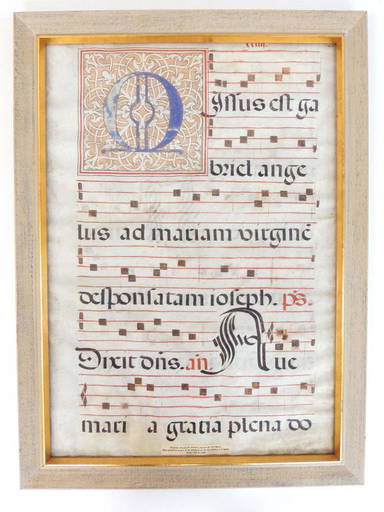 xxiiii.
Missus est ga
briel ange
lus ad mariam virginē
desponsatam ioseph. ps.
Dixit dn̄s. an̄ Aue
mari a gratia plena do